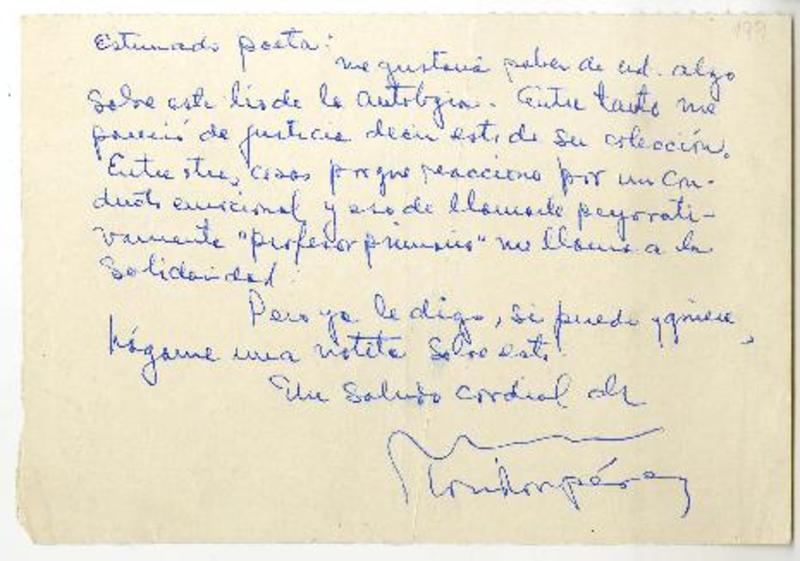 199
Estimado poeta:
me gustaría saber de ud. algo
sobre este lío de la antología. Entre tanto me
pareció de justicia decir esto de su colección.
Entre otras, cosas porque reacciono por un con-
ducto emocional y eso de llamarle peyorati-
vamente "profesor primario" me llama a la
solidaridad.
Pero ya le digo, si puede y quiere,
hágame una notita sobre esto.
Un saludo cordial de
Floridor Pérez